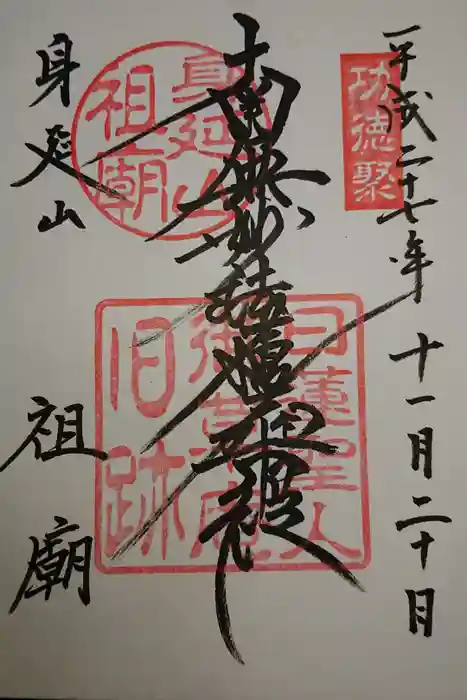 平成二十七年 十一月二十日
功徳聚
南無妙法蓮華経
身延山
祖廟
日蓮聖人
御草庵
旧跡
身延山 祖廟